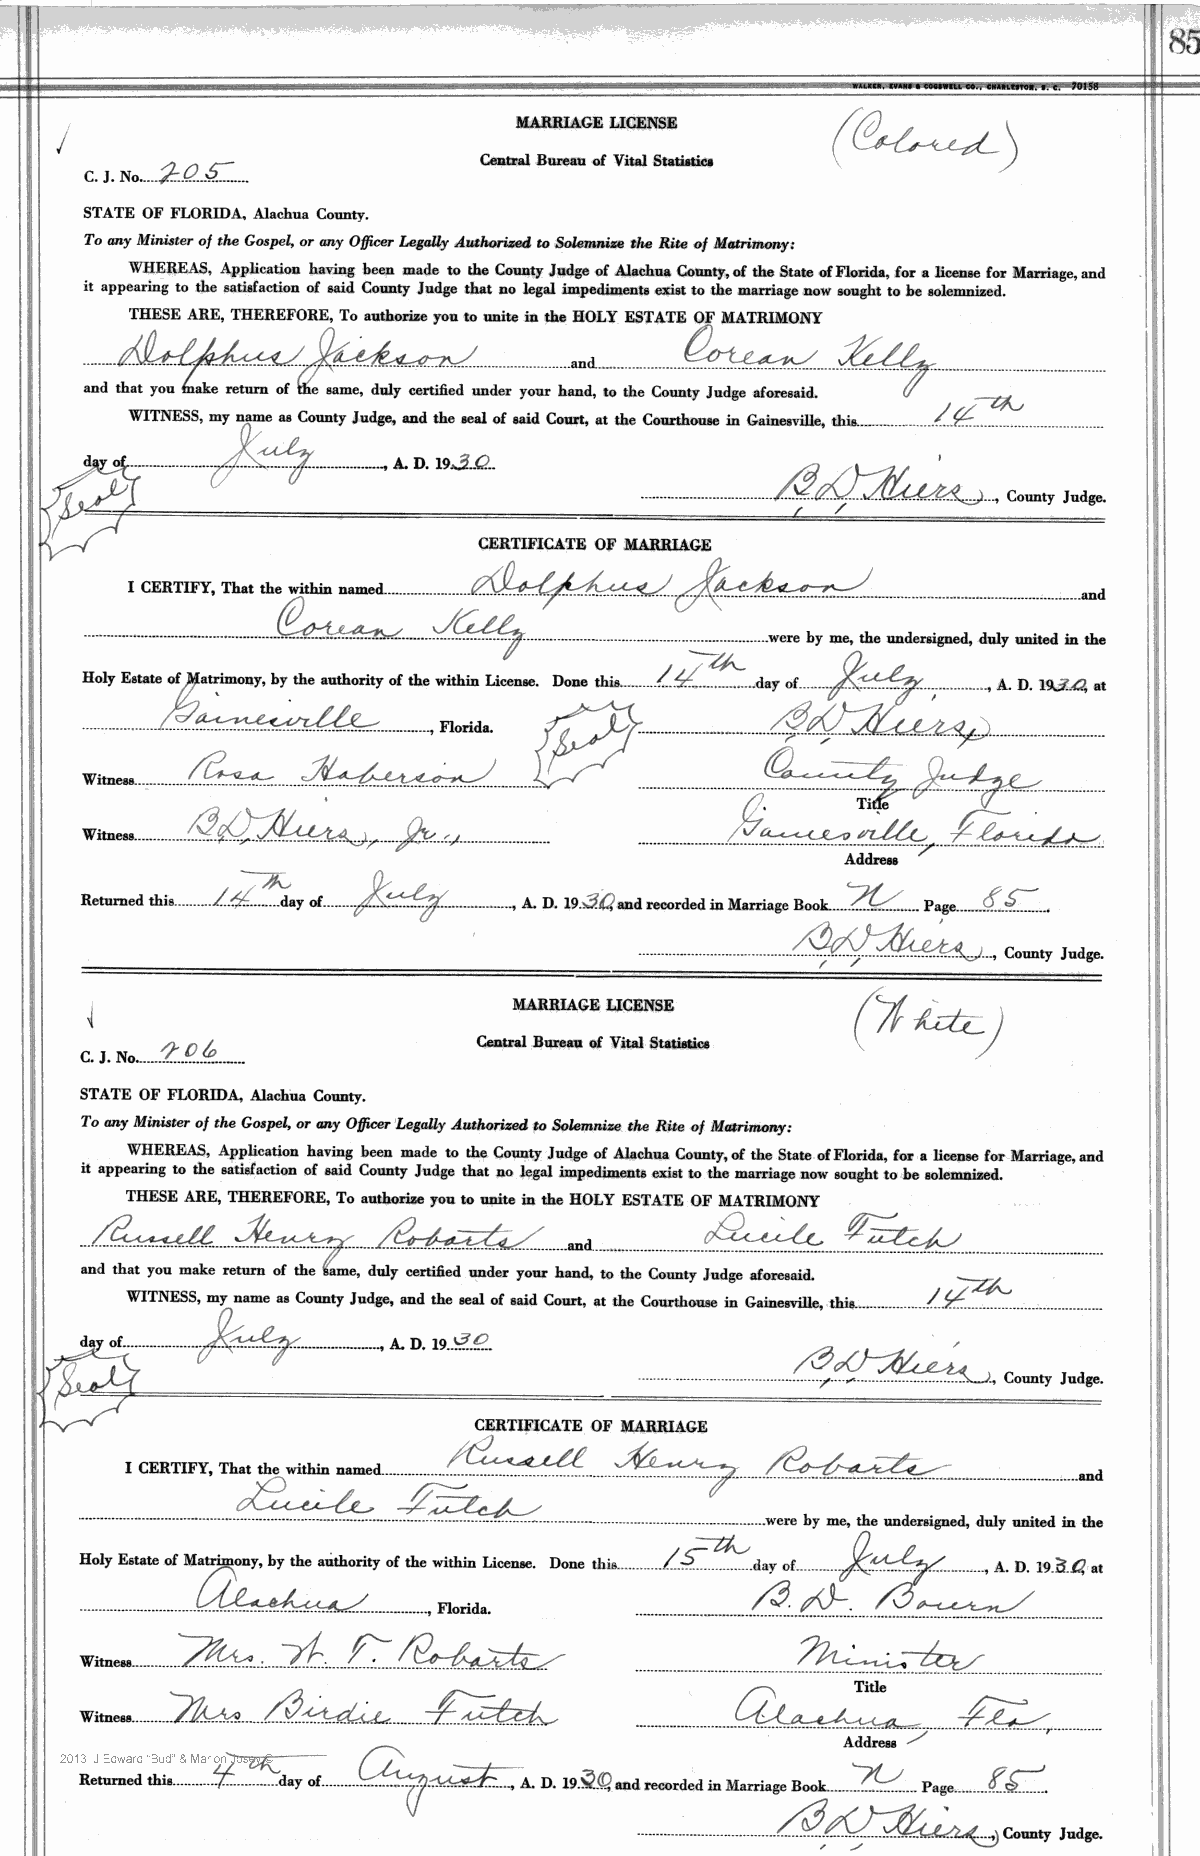 85
WALKER, EVANS & COGSWELL CO., CHARLESTON, S. C. 70158
MARRIAGE LICENSE
(Colored)
Central Bureau of Vital Statistics
C. J. No. 205
STATE OF FLORIDA, Alachua County.
To any Minister of the Gospel, or any Officer Legally Authorized to Solemnize the Rite of Matrimony:
WHEREAS, Application having been made to the County Judge of Alachua County, of the State of Florida, for a license for Marriage, and
it appearing to the satisfaction of said County Judge that no legal impediments exist to the marriage now sought to be solemnized.
THESE ARE, THEREFORE, To authorize you to unite in the HOLY ESTATE OF MATRIMONY
Dolphus Jackson and Corean Kelly
and that you make return of the same, duly certified under your hand, to the County Judge aforesaid.
WITNESS, my name as County Judge, and the seal of said Court, at the Courthouse in Gainesville, this 14th
day of July, A. D. 1930
Seal
B, D, Hiers, County Judge.
CERTIFICATE OF MARRIAGE
I CERTIFY, That the within named Dolphus Jackson and
Corean Kelly were by me, the undersigned, duly united in the
Holy Estate of Matrimony, by the authority of the within License. Done this 14th day of July, A. D. 1930, at
Gainesville, Florida. Seal B, D, Hiers,
Witness Rosa Haberson County Judge
Title
Witness B, D, Hiers, Jr., Gainesville, Florida
Address
Returned this 14th day of July, A. D. 1930, and recorded in Marriage Book N Page 85.
B, D, Hiers, County Judge.
MARRIAGE LICENSE
(White)
Central Bureau of Vital Statistics
C. J. No. 206
STATE OF FLORIDA, Alachua County.
To any Minister of the Gospel, or any Officer Legally Authorized to Solemnize the Rite of Matrimony:
WHEREAS, Application having been made to the County Judge of Alachua County, of the State of Florida, for a license for Marriage, and
it appearing to the satisfaction of said County Judge that no legal impediments exist to the marriage now sought to be solemnized.
THESE ARE, THEREFORE, To authorize you to unite in the HOLY ESTATE OF MATRIMONY
Russell Henry Robarts and Lucile Futch
and that you make return of the same, duly certified under your hand, to the County Judge aforesaid.
WITNESS, my name as County Judge, and the seal of said Court, at the Courthouse in Gainesville, this 14th
day of July, A. D. 1930
Seal
B, D, Hiers, County Judge.
CERTIFICATE OF MARRIAGE
I CERTIFY, That the within named Russell Henry Robarts and
Lucile Futch were by me, the undersigned, duly united in the
Holy Estate of Matrimony, by the authority of the within License. Done this 15th day of July, A. D. 1930, at
Alachua, Florida. B. D. Bourn
Witness Mrs. W. T. Robarts Minister
Title
Witness Mrs Birdie Futch Alachua, Fla,
Address
2013 J Edward "Bud" & Marion Josey ©
Returned this 4th day of August, A. D. 1930, and recorded in Marriage Book N Page 85.
B, D, Hiers, County Judge.